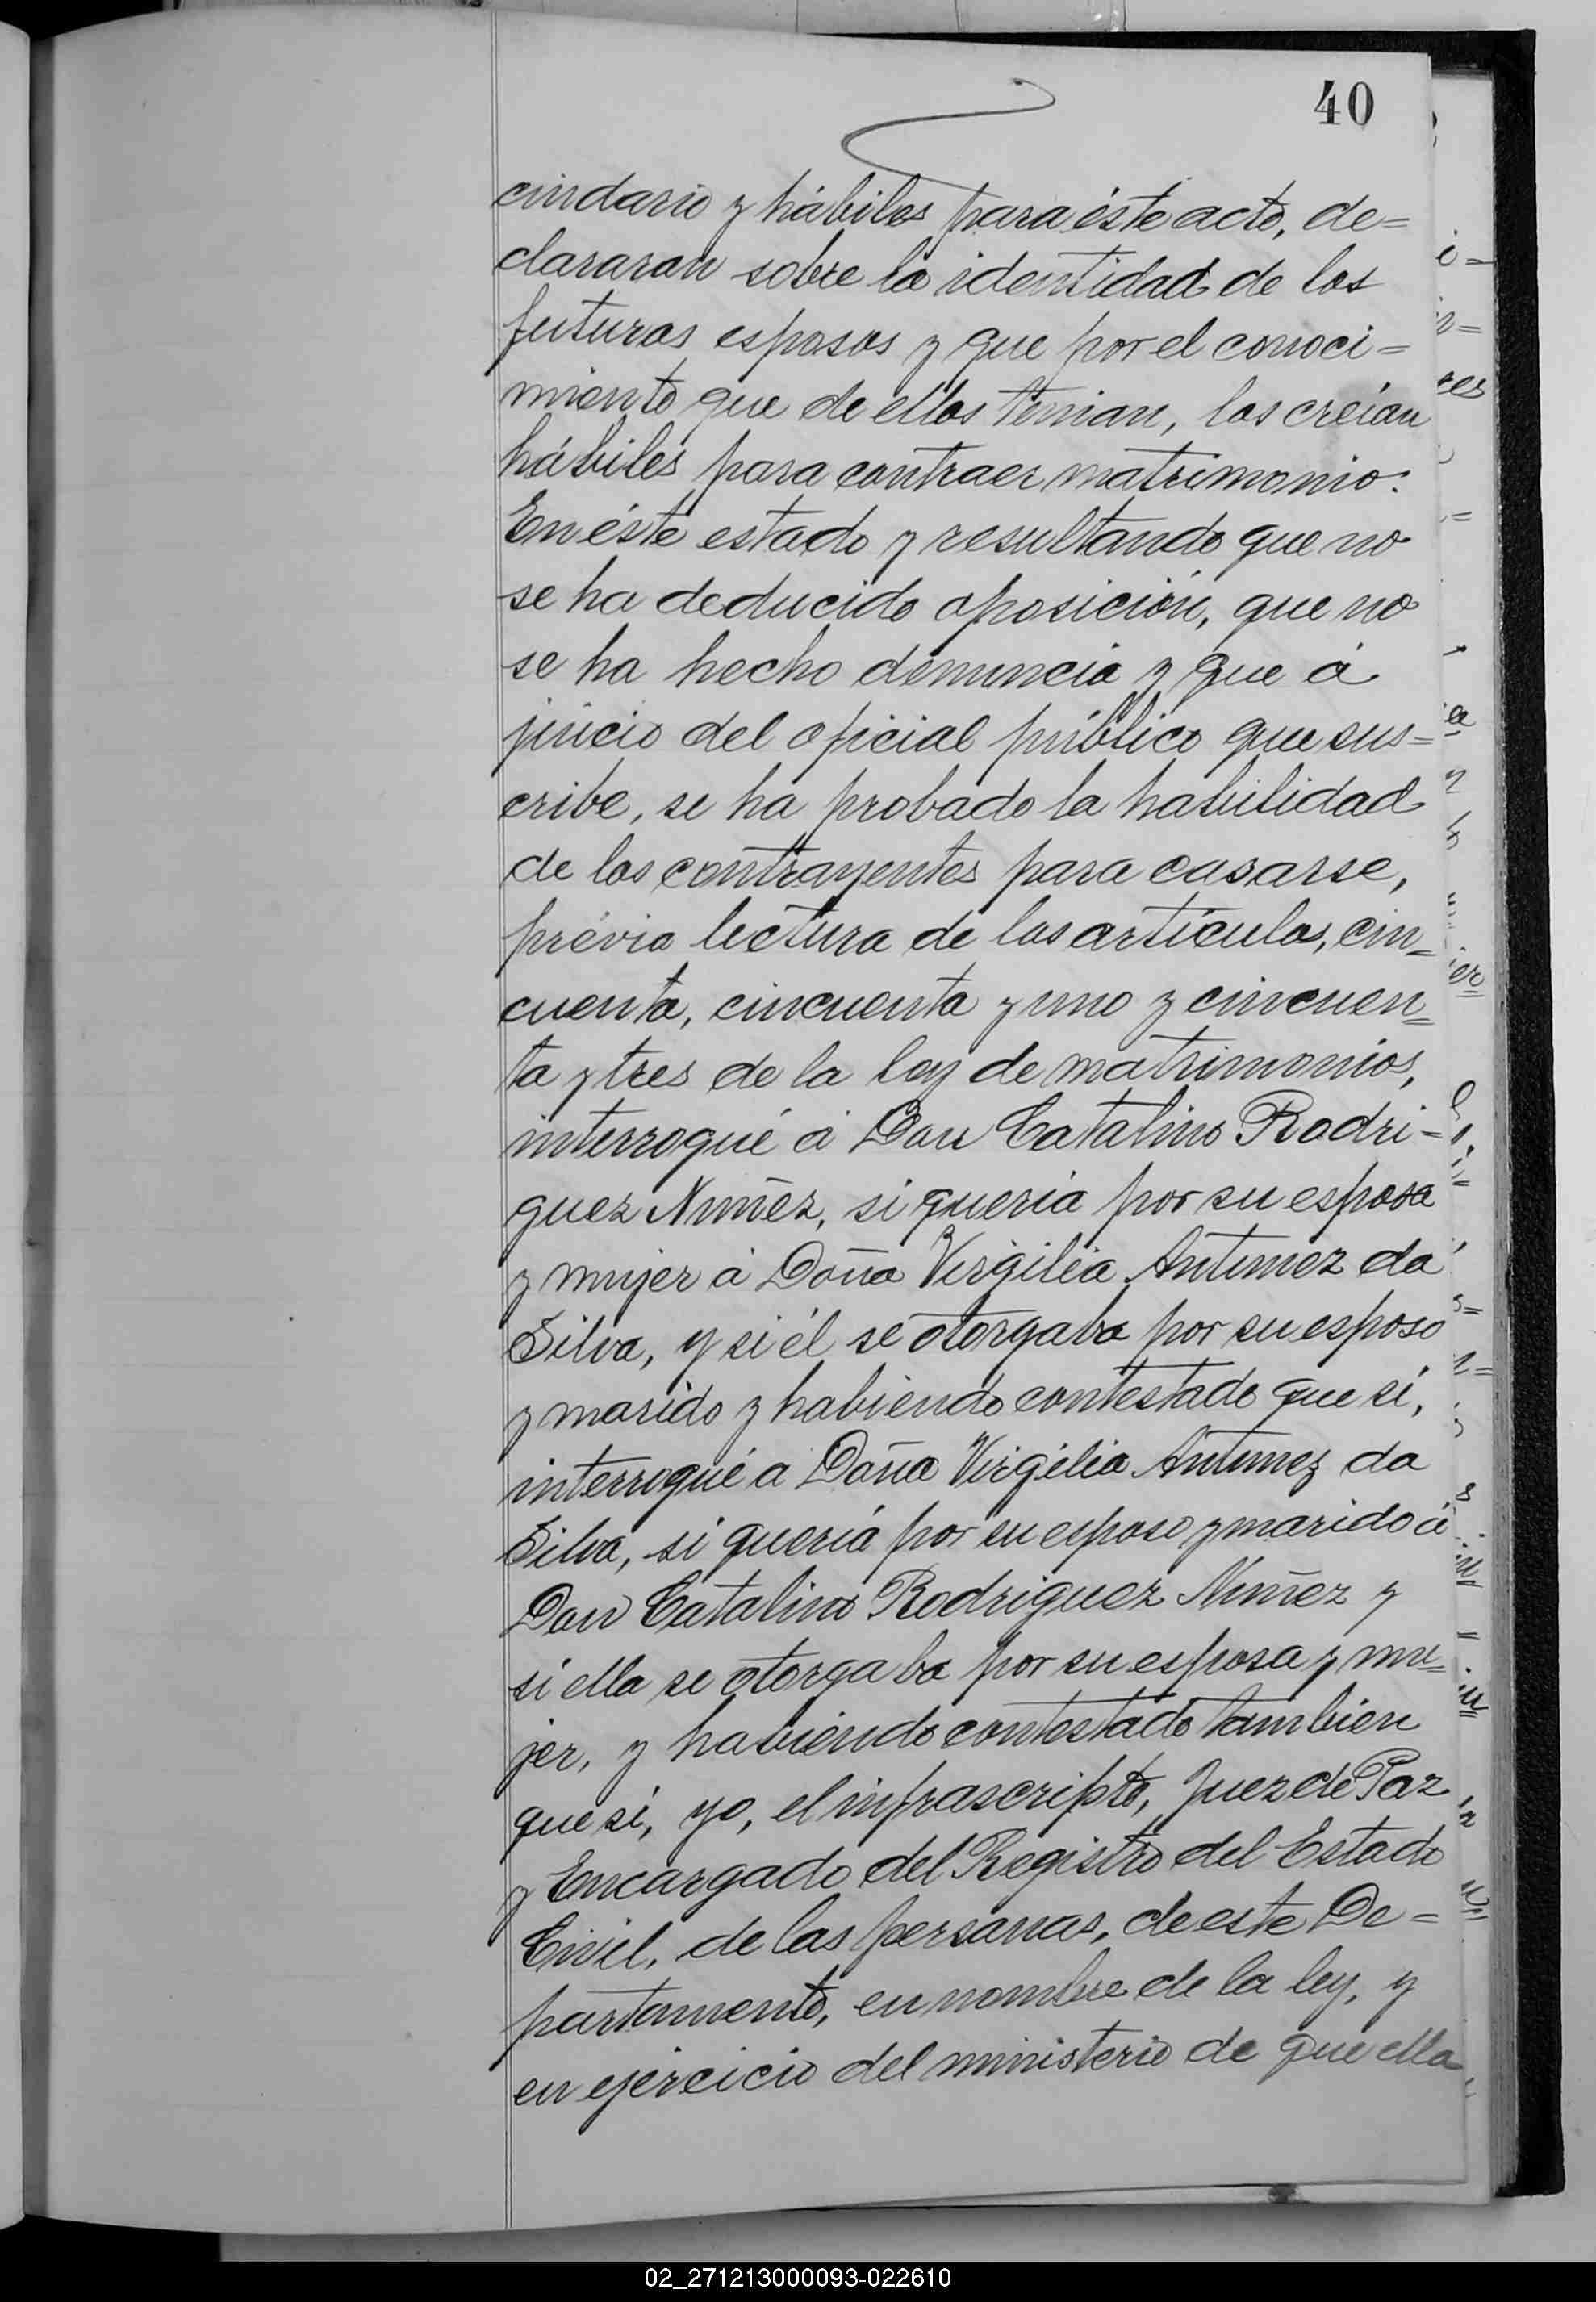 40
cindario y hábiles para éste acto, de=
clararan sobre la identidad de los
futuros esposos y que por el conoci=
miento que de ellos tenian, los creían
hábiles para contraer matrimonio.
En éste estado y resultando que no
se ha deducido oposición, que no
se ha hecho denuncia y que á
juicio del oficial público que sus=
cribe, se ha probado la habilidad
de los contrayentes para casarse,
prévia lectura de los artículos, cin=
cuenta, cincuenta y uno y cincuen=
ta y tres de la ley de matrimonios,
interrogué á Don Catalino Rodri=
guez Nuñez, si quería por su esposa
y mujer á Doña Virgilia Antunez da
Silva, y si él se otorgaba por su esposo
y marido y habiendo contestado que sí,
interrogué a Doña Virgilia Antunez da
Silva, si quería por su esposo y marido á
Don Catalino Rodriguez Nuñez y
si ella se otorgaba por su esposa y mu=
jer, y habiendo contestado tambien
que sí, yo, el infrascripto, Juez de Paz
y Encargado del Registro del Estado
Civil, de las personas, de este De=
partamento, en nombre de la ley, y
en ejercicio del ministerio de que ella
02_271213000093-022610